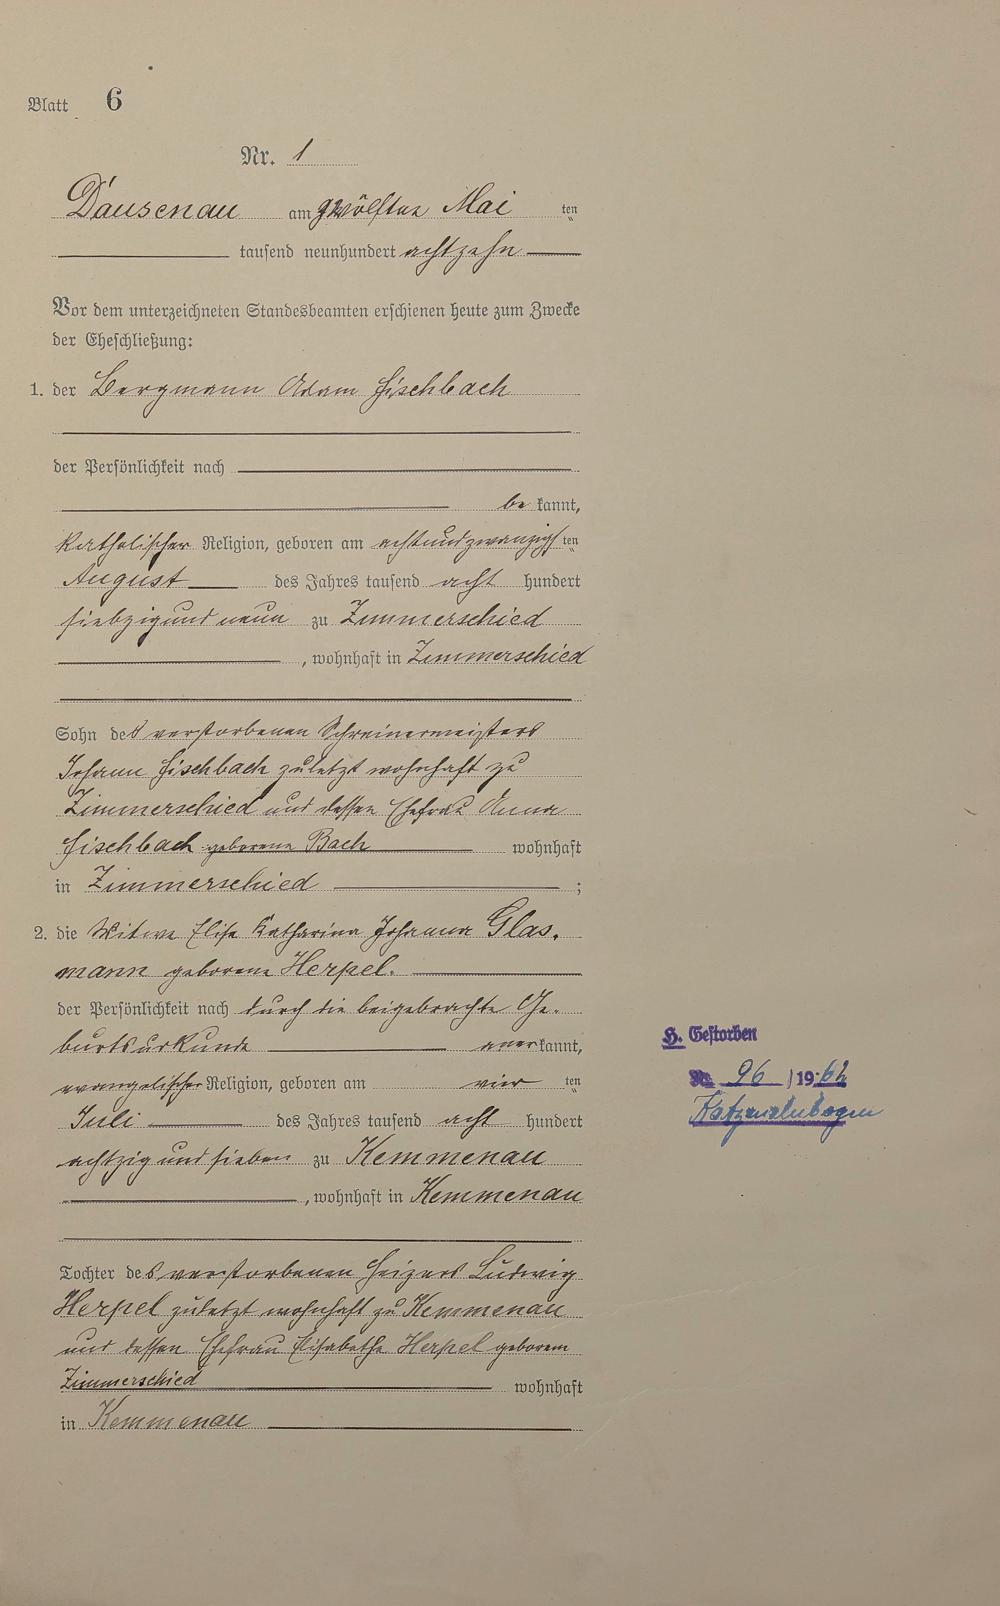 Blatt 6
Nr. 1
Dausenau am zwölften Mai ten
tausend neunhundert achtzehn
Vor dem unterzeichneten Standesbeamten erschienen heute zum Zwecke
der Eheschließung:
1. der Bergmann Adam Fischbach
der Persönlichkeit nach
be kannt,
katholischer Religion, geboren am achtundzwanzigsten
August des Jahres tausend acht hundert
siebzigundneun zu Zimmerschied
, wohnhaft in Zimmerschied
Sohn des verstorbenen Schreinermeisters
Johann Fischbach zuletzt wohnhaft zu
Zimmerschied und dessen Ehefrau Anna
Fischbach geborene Bach wohnhaft
in Zimmerschied ;
2. die Witwe Elise Katharina Johanna Glas-
mann geborene Herpel.
der Persönlichkeit nach durch die beigebrachte Ge-
burtsurkunde anerkannt,
evangelischer Religion, geboren am vier ten
Juli des Jahres tausend acht hundert
achtzig und sieben zu Kemmenau
, wohnhaft in Kemmenau
Tochter des verstorbenen Heizers Ludwig
Herpel zuletzt wohnhaft zu Kemmenau
und dessen Ehefrau Elisabethe Herpel geborene
Zimmerschied wohnhaft
in Kemmenau
H. Gestorben
Nr. 96 / 1962
Katzenelnbogen